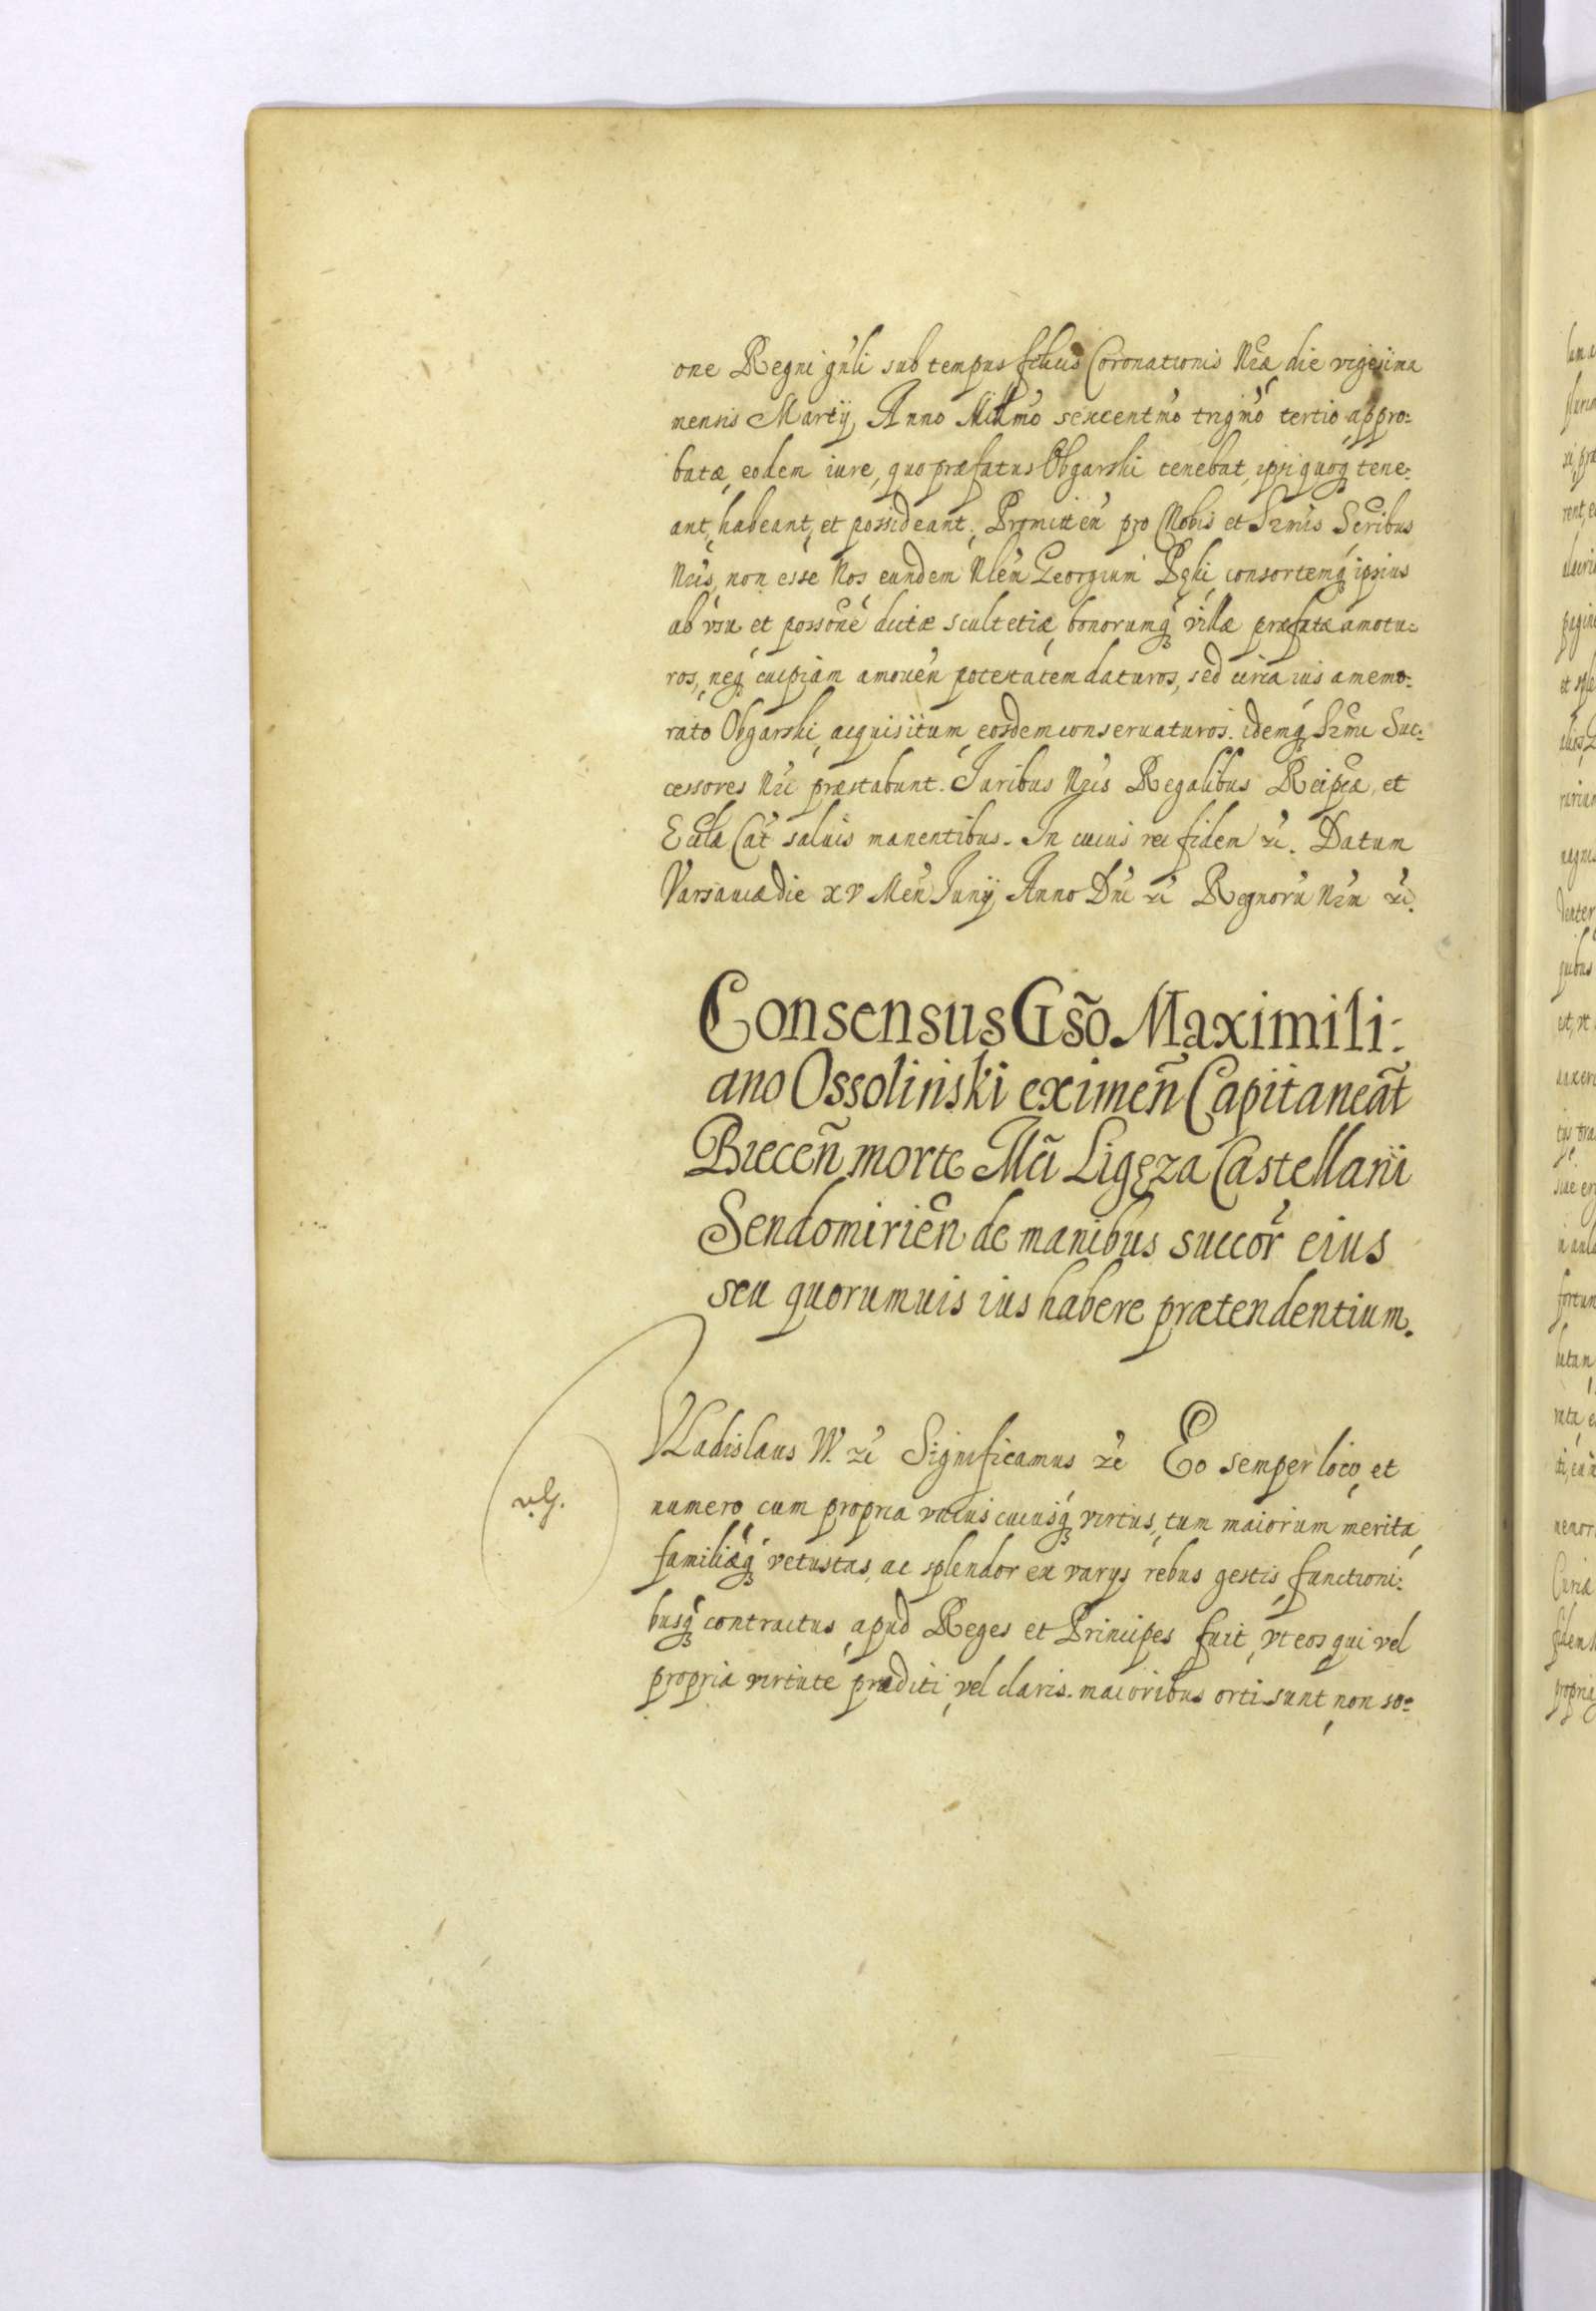 one Regni gñli sub tempus felicis Coronationis Nræ die vigesima
mensis Martij Anno Millmo sexcentmo trigmo tertio appro:
batæ, eodem iure, quo præfatus Obgarski tenebat, ipsi quoq tene:
ant, habeant, et possideant. Promitten pro Nobis et Srmis Scribus
Nris, non esse Nos eundem Nlem Georgium consortemq ipsius
ab vsu et possone dictæ scultetiæ, bonorumq villæ præfatæ amotu:
ros, neq cuipiam amouen potestatem daturos, sed circa ius a memo:
rato Obgarski acquisitum, eosdem conseruaturos. idemq Srmi Suc:
cessores Nri præstabunt. Iuribus Nris Regalibus Reipcæ, et
Ecclæ Cat saluis manentibus. In cuius rei fidem &c. Datum
Varsauiæ die XV Men Iunij Anno Dni &c Regnoru Nrm &c.
Consensus Gso Maximili:
ano Ossoliński eximen Capitaneat
Biecen morte Mci Ligęza Castellani
Sendomirien de manibus succor eius
seu quorumuis ius habere prætendentium.
Vladislaus IV. &c Significamus &c Eo semper loco, et
numero cum propria vnius cuiusq virtus, tum maiorum merita,
familiæq vetustas, ac splendor ex varijs rebus gestis, functioni:
busq contractus, apud Reges et Principes fuit, vt eos qui vel
propria virtute præditi, vel claris maioribus orti sunt, non so: